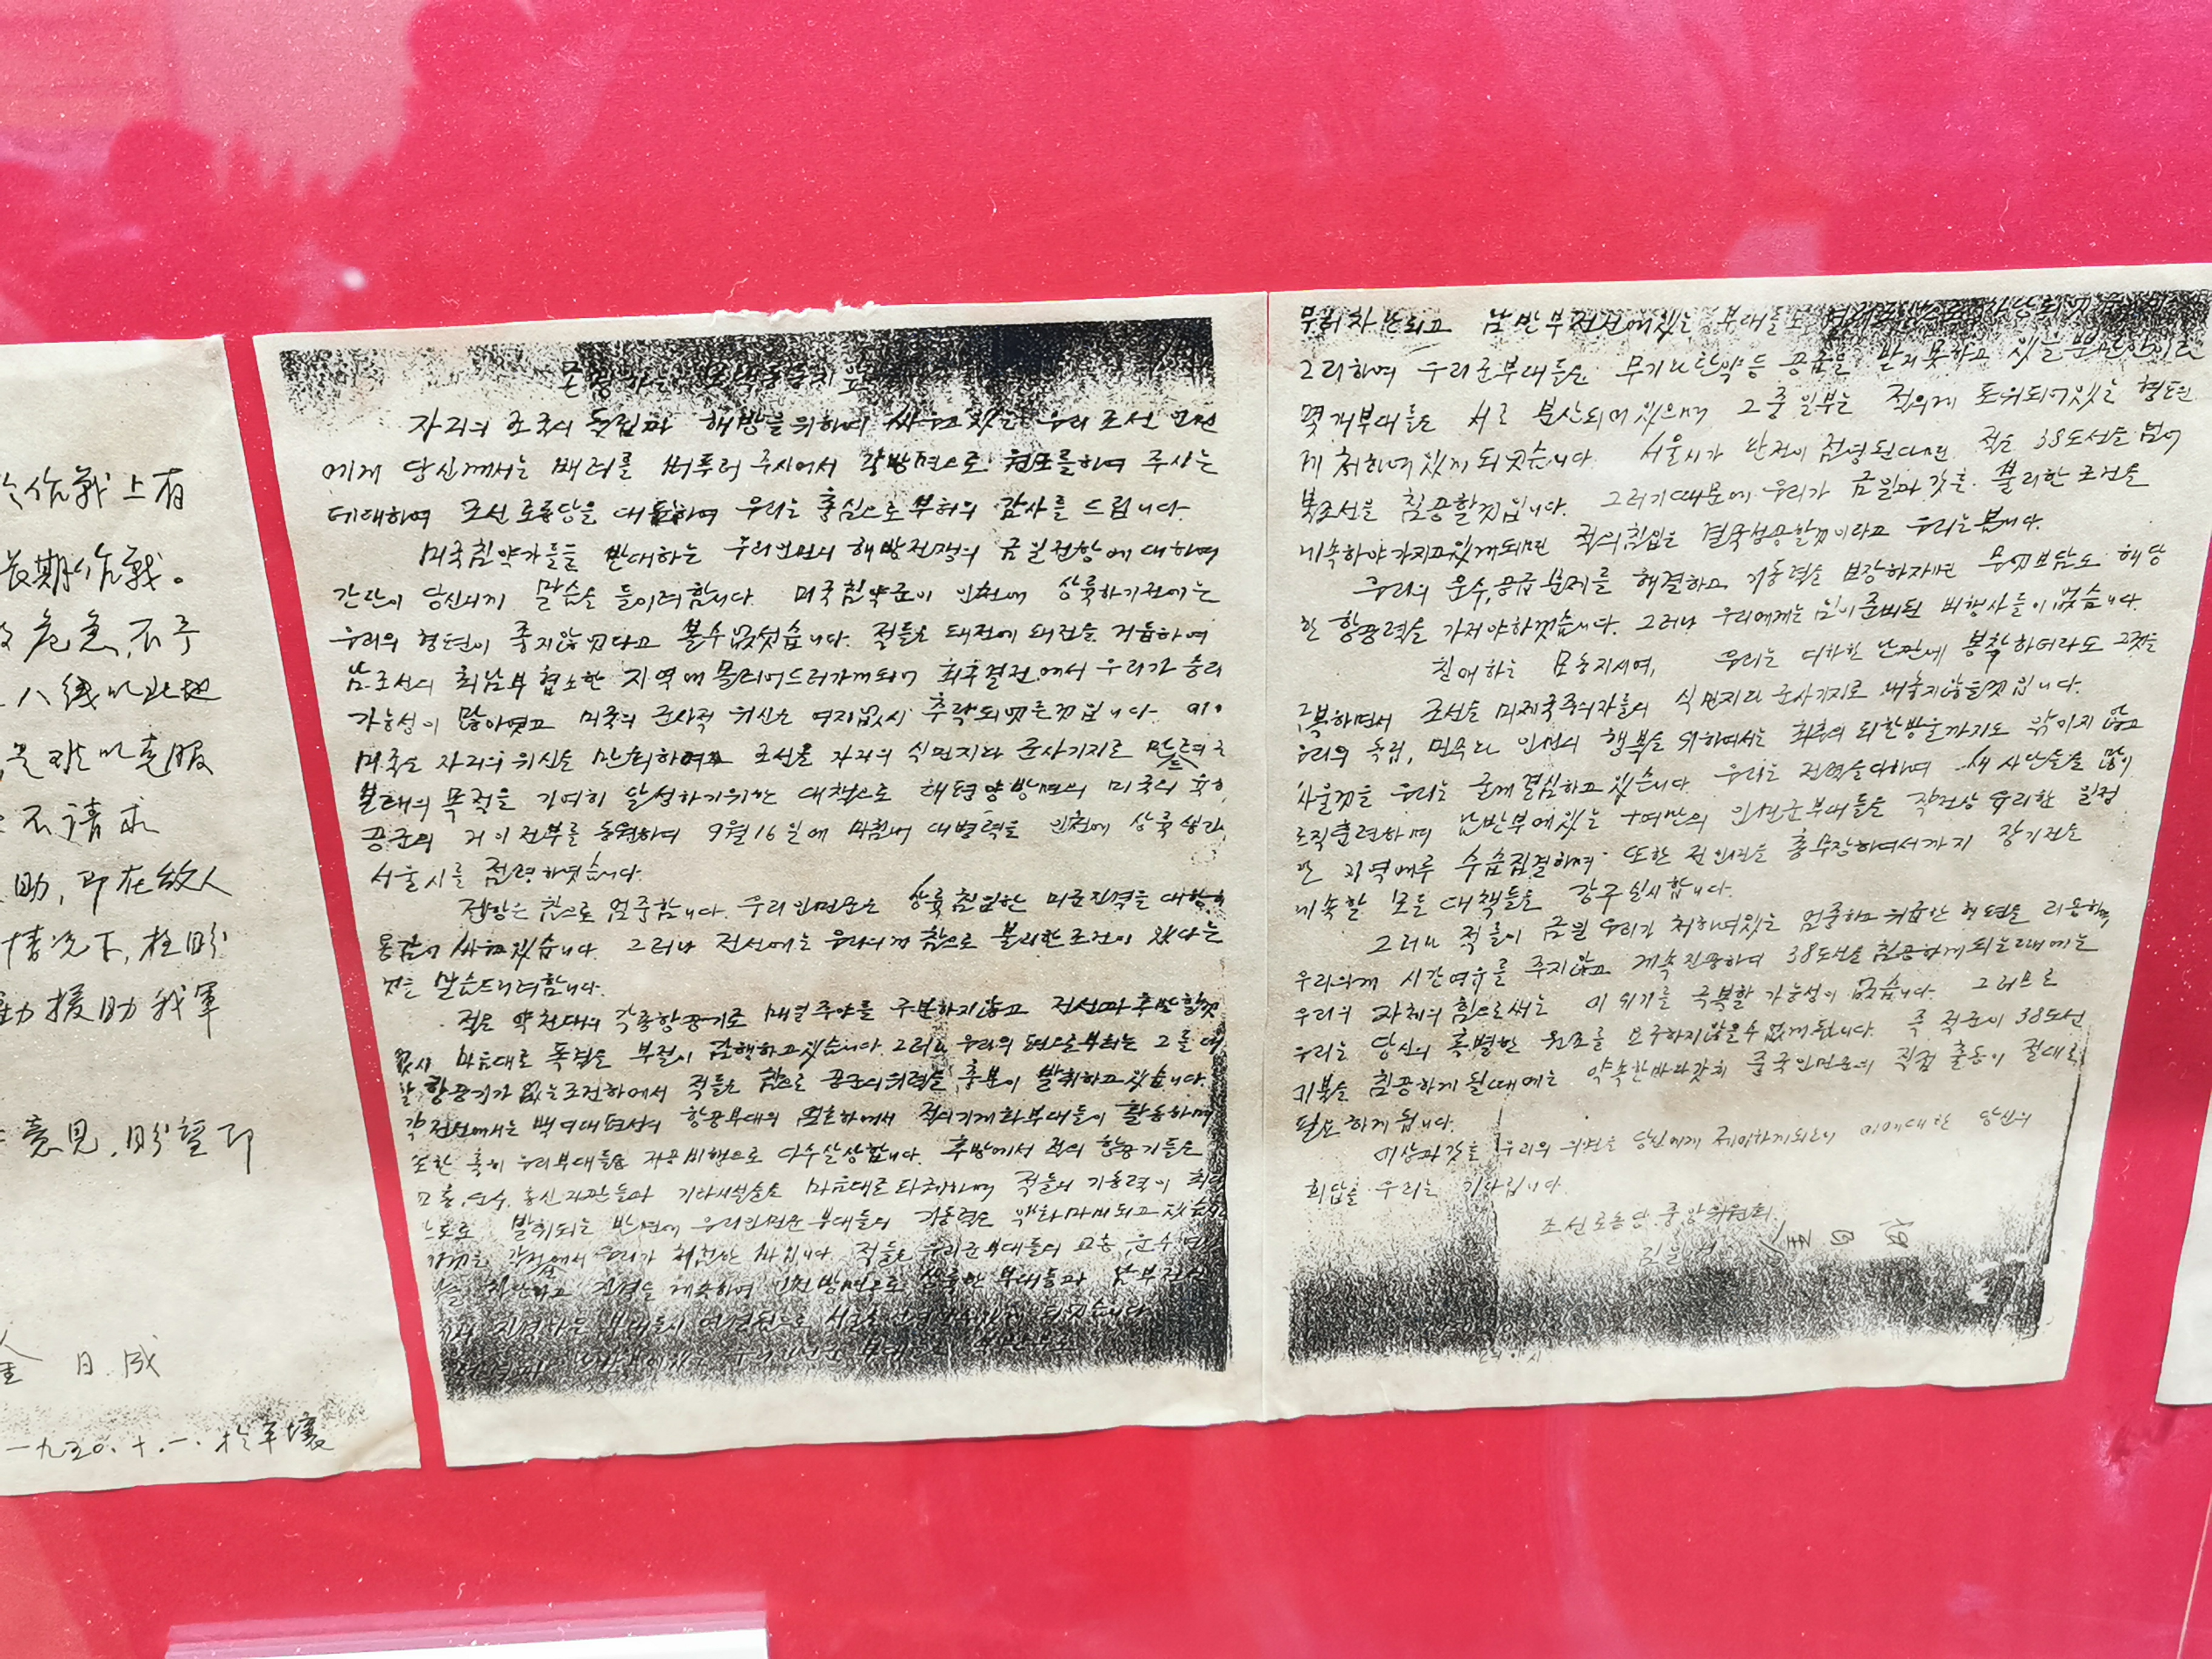 於作戰上有
長期作戰。
危急,不予
八綫以北地
是难以克服
不請求
助,即在敌人
情况下,在盼
動援助我軍
意見,盼望即
金日成
一九五〇.十.一.於平壤
존경하는 모택동동지앞
자긔의 조국의 독립과 해방을위하여 싸우고있는 우리 조선 인민
에게 당신께서는 배려를 베푸러 주시여서 각방면으로 원조를하여 주시는
데대하여 조선로동당을 대표하여 우리는 충심으로부터의 감사를 드립니다.
미국침약가들을 반대하는 우리인민의 해방전쟁의 금일전항에 대하여
간단이 당신의게 말슴을 들이려합니다. 미국침약군이 인천에 상륙하기전에는
우리의 형편이 좋지않엇다고 볼수없섯습니다. 적들은 패전에 패전을 거듭하여
남조선의 최남부 협소한 지역에 몰리여드러가게되여 최후결전에서 우리가 승리
가능성이 많아엿고 미국의 군사적 위신은 여지없시 추락되엿든것입니다.
미국은 자긔의 위신을 만회하며 조선을 자긔의 식민지와 군사기지로 만들려
본래의 목적을 기여히 달성하기위한 대책으로 태평양방면의 미국의
공군의 거이전부를 동원하여 9월16일에 마침내 대병력을 인천에 상륙
서울시를 점령하엿습니다.
전황은 참으로 엄중합니다. 우리인민군은 상륙침입한 미군진격을 대항하
용감이 싸우고있습니다. 그러나 전선에는 우리의게 참으로 불리한조건이 있다는
것을 말슴드리려합니다.
적은 약천대의 각종항공기로 매일주야를 구분하지않고 전선과후방할것
없시 마음대로 폭격을 부절이 감행하고있습니다. 그러나 우리의 편으로부터는 그를
할 항공기가 없는조건하에서 적들은 참으로 공군의위력을 충분이 발휘하고있습니다.
각전선에서는 백여대편대의 항공부대의 엄호하에서 적의기계화부대들이 활동하며
또한 특히 우리부대들을 저공비행으로 다수살상합니다. 후방에서 적의 항공기들은
교통,운수,통신기관들과 기타시설들을 마음대로파괴하며 적들의 기동력이 최대
발휘되는 반면에 우리인민군부대들의 기동력은 약화마비되고있습니다
각전선에서 우리가 체험한 바입니다. 적들은 우리군부대들의 교통,운수
진격을 계속하여 인천방면으로 상륙한 부대들과 남부전선
진격하는 부대들이 연결됨으로 되엿습니다
우리 인민군 부대들은 북반부로
남반부전선에있는 부대들도
그리하여 우리군부대들은 무기와탄약등 공급을 받지못하고 있을뿐만안이라
몇개부대들은 서로 분산되여있으며 그중일부는 적의게 포위되여있는 형편
게 처하여있게되엿습니다. 서울시가 완전이 점령된다면 적은 38도선을넘어
북조선을 침공할것입니다. 그러기때문에 우리가 금일과같은 불리한조건을
계속하야가지고있게되면 적의침입은 결국성공할것이라고 우리는봅니다.
우리의 운수,공급 문제를 해결하고 기동력을 보장하자면 무엇보담도 해당
한 항공력을 가저야하겟습니다. 그러나 우리에게는 님이준비된 비행사들이없습니다.
친애하는 모동지시여, 우리는 여하한 난관에 봉착하여라도 그것을
극복하면서 조선을 미제국주의자들의 식민지와 군사기지로 내놓지않을것입니다.
우리의 독립, 민주와 인민의 행복을 위하여서는 최후의 피한방울까지도 앆이지않고
싸울것을 우리는 굳게결심하고있습니다. 우리는 전력을다하여 새 사단들을 많이
조직훈련하며 남반부에있는 十여만의 인민군부대들을 작전상 유리한 일정
한 지역에루 수습집결하며 또한 전인민을 총무장하여서까지 장기전을
계속할 모든 대책들을 강구실시합니다.
그러나 적들이 금일 우리가 처하여있는 엄중하고위급한 형편을 리용하여
우리의게 시간여유를 주지않고 계속진공하여 38도선을침공하게되는때에는
우리의 자체의힘으로써는 이 위기를 극복할 가능성이 없습니다. 그러므로
우리는 당신의 특별한 원조를 요구하지않을수없게됩니다. 즉 적군이 38도선
이북을 침공하게될때에는 약속한바와같이 중국인민군의 직접 출동이 절대로
필요하게됩니다.
이상과같은 우리의 의견을 당신에게 제의하게되오니 이에대한 당신의
회답을 우리는 기다립니다.
조선로동당 중앙위원회
김일성